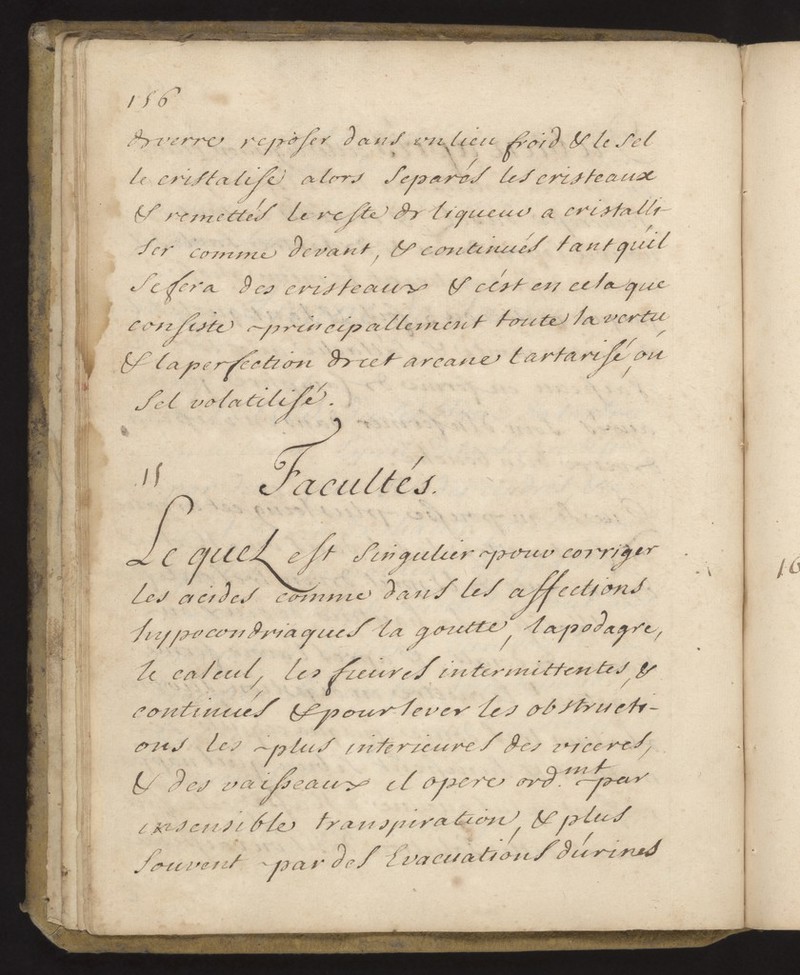 156
de verre reposer dans un lieu froid & le sel
le cristalise alors separés les cristeaux
& remettés le reste de liqueur a cristalli-
ser comme devant, & continués tant qu'il
se fera des cristeaux & c'ést en cela que
consiste principallement toute la vertu
& la perfection de cet arcane tartarisé, ou
sel volatilisé.
15 Facultés.
Le quel est singulier pour corriger
les acides comme dans les affections
hypocondriaques la goutte, la podagre,
le calcul, les fieures intermittentes, &
continués & pour lever les obstructi-
ons les plus interieures des viceres,
& des vaisseaux il opere ord.mt par
insensible transpiration, & plus
souvent par des Evacuations d'urines
16